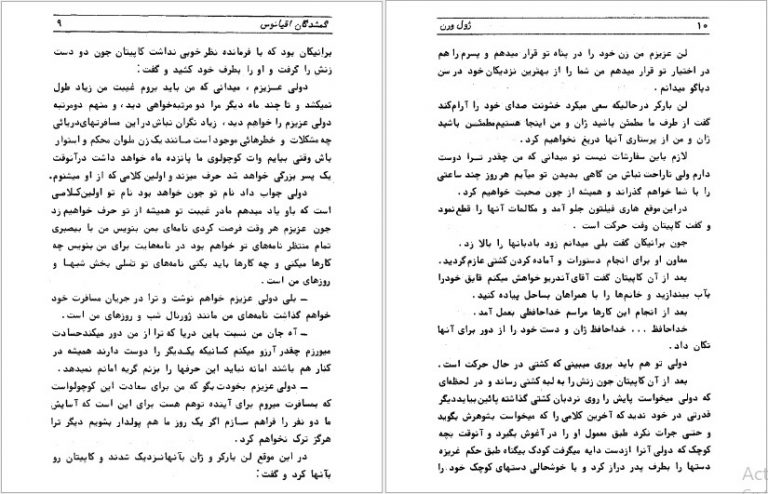 گمشدگان اقیانوس ۹
برانیکان بود که با فرمانده نظر خوبی نداشت کاپیتان جون دو دست
زنش را گرفت و او را بطرف خود کشید و گفت:
دولی عـزیزم ، میدانی که من باید بروم غیبت من زیاد طول
نمیکشد و تا چند ماه دیگر مرا دو مرتبه خواهی دید ، و منهم دومرتبه
دولی عزیزم را خواهم دید ، زیاد نگران نباش در این مسافرتهای دریائی
چه مشکلات و خطرهائی موجود است مـانند یک زن ملوان محکم و استوار
باش وقتی بیایم وات کوچولوی ما پانزده ماه خواهد داشت در آنوقت
یک پسر بزرگی خواهد شد حرف میزند و اولین کلامی که از او میشنوم.
دولی جواب داد نام تو جون خواهد بود نام تو اولین کلامی
است که باو یاد میدهم مادر غیبت تو همیشه از تو حرف خواهیم زد
جون عزیزم هر وقت فرصت کردی نامه‌ای بمن بنویس من با بیصبری
تمام منتظر نامه‌های تو خواهم بود در نامه‌هایت برای من بنویس چه
کارها میکنی و چه کارها باید بکنی نامه‌های تو تسلی بخش شبهـا و
روزهای من است .
ــ بلی دولی عزیزم خواهم نوشت و ترا در جریان مسافرت خود
خواهم گذاشت نامه‌های من مانند ژورنال شب و روزهای من است .
ــ آه جان من نسبت باین دریا که ترا از من دور میکند حسادت
میورزم چقدر آرزو میکنم کسانیکه یکدیگر را دوست دارند همیشه در
کنار هم باشند امانه نباید این حرفها را بزنم گریه امانم نمیدهد.
ــ دولی عزیزم بخودت بگو که من برای سعادت این کوچولواست
که بمسافرت میروم برای آینده توهم هست برای این است که آسایش
ما دو نفر را فراهم سـازم اگر یک روز ما هم پولدار بشویم دیگر ترا
هرگز ترک نخواهم کرد .
در این موقع لن بارکر و ژان بآنها نزدیک شدند و کاپیتان رو
بآنها کرد و گفت :
۱۰ ژول ورن
لن عزیزم من زن خود را در پناه تو قرار میدهم و پسرم را هم
در اختیار تو قرار میدهم من شما را از بهترین نزدیکان خود در سن
دیاگو میدانم .
لن بارکر در حالیکه سعی میکرد خشونت صدای خود را آرام کند
گفت از طرف ما مطمئن باشید ژان و من اینجا هستیم مطمئـن باشید
ژان و من از پرستاری آنها دریغ نخواهیم کرد .
لازم باین سفارشات نیست تو میدانی که من چقدر تـرا دوست
دارم ولی ناراحت نباش من گاهی بدیدن تو میآیم هر روز چند ساعتی
را با شما خواهم گذراند و همیشه از جون صحبت خواهیم کرد .
در این موقع هاری فیلتون جلو آمد و مکالمات آنها را قطع نمود
و گفت کاپیتان وقت حرکت است .
جون برانیکان گفت بلی میدانم زود بادبانها را بالا زد .
معاون او برای انجام دستورات و آماده کردن کشتی عازم گردید .
بعد از آن کاپیتان گفت آقای آندریو خواهش میکنم قایق خودرا
بآب بیندازید و خانم‌ها را با همراهان بساحل پیاده کنید .
بعد از انجام این کارها مراسم خداحافظی بعمل آمد .
خداحافظ ... خداحافظ ژان و دست خود را از دور برای آنها
تکان داد .
دولی تو هم باید بروی میبینی که کشتی در حال حرکت است .
بعد از آن کاپیتان جون زنش را به لبه کشتی رساند و در لحظه‌ای
که دولی میخواست پایش را روی نردبان کشتی گذاشته پائین بیاید دیگر
قدرتی در خود ندید که آخرین کلامی را که میخواست بشوهرش بگوید
و حتـی جرات نکرد طبق معمول او را در آغوش بگیرد و آنوقت بچه
کوچک که دولی آنرا ازدست دایه میگرفت کودک بیگناه طبق حکم غریزه
دستها را بطرف پدر دراز کرد و با خوشحالی دستهای کوچک خود را